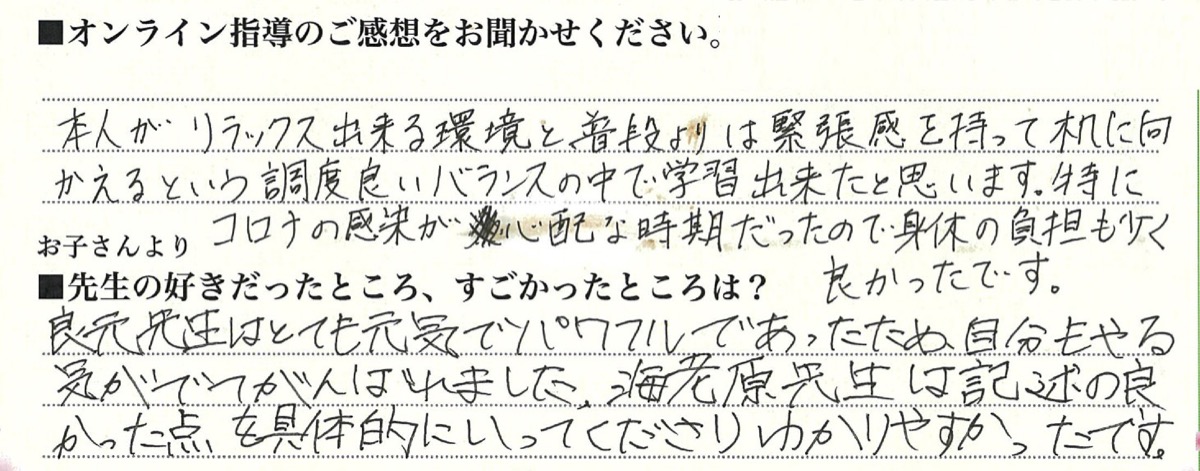 ■オンライン指導のご感想をお聞かせください。
本人がリラックス出来る環境と、普段よりは緊張感を持って机に向
かえるという調度良いバランスの中で学習出来たと思います。特に
コロナの感染が心配な時期だったので身体の負担も少く
良かったです。
お子さんより
■先生の好きだったところ、すごかったところは？
良元先生はとても元気でパワフルであったため、自分もやる
気がでてがんばれました。海老原先生は記述の良
かった点を具体的にいってくださりわかりやすかったです。